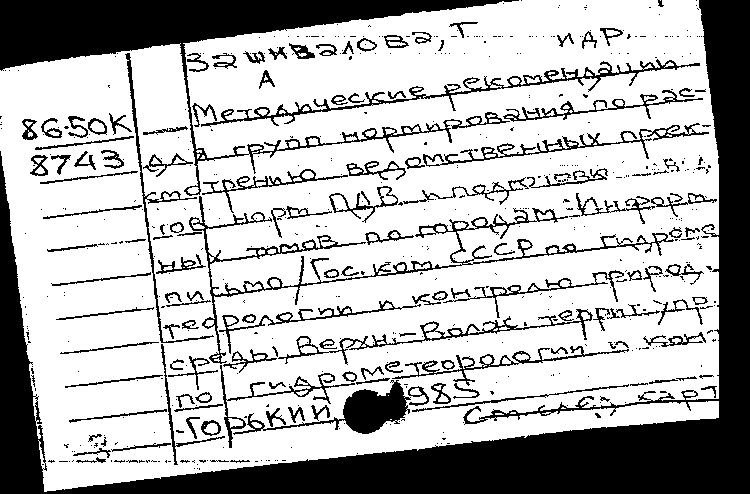 Зашивалова, Т. и др.
А
86-50К Методические рекомендации
8743 для групп нормирования по рас-
смотрению ведомственных проек-
тов норм ПДВ и подготовке
ных томов по городам: Информ.
письмо / Гос. ком. СССР по гидроме
теорологии и контролю природ.
среды, Верхн.-Волж. террит. упр.
по гидрометеорологии и конт
Горький, 985.
См. след. карт